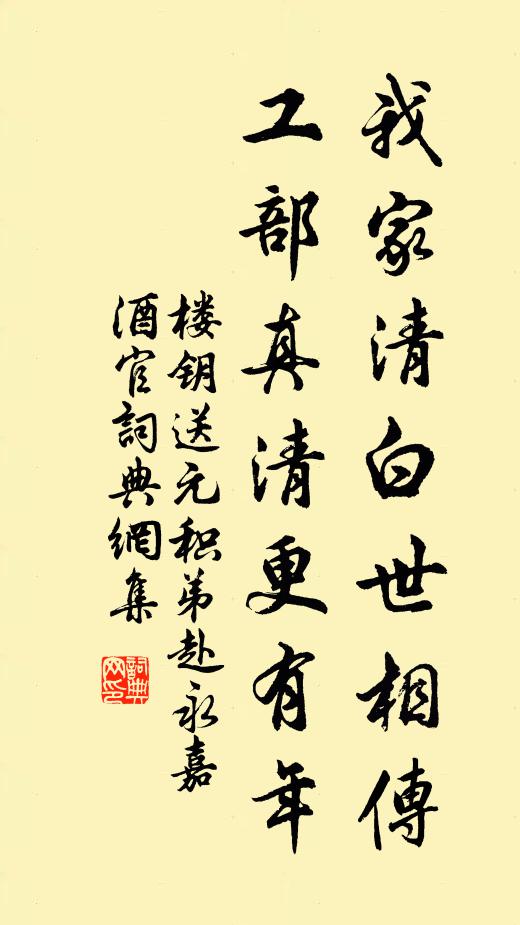 我家清白世相傳
工部真清更有年
楼钥送元积弟赴永嘉
酒官詞典網集
詞典网印